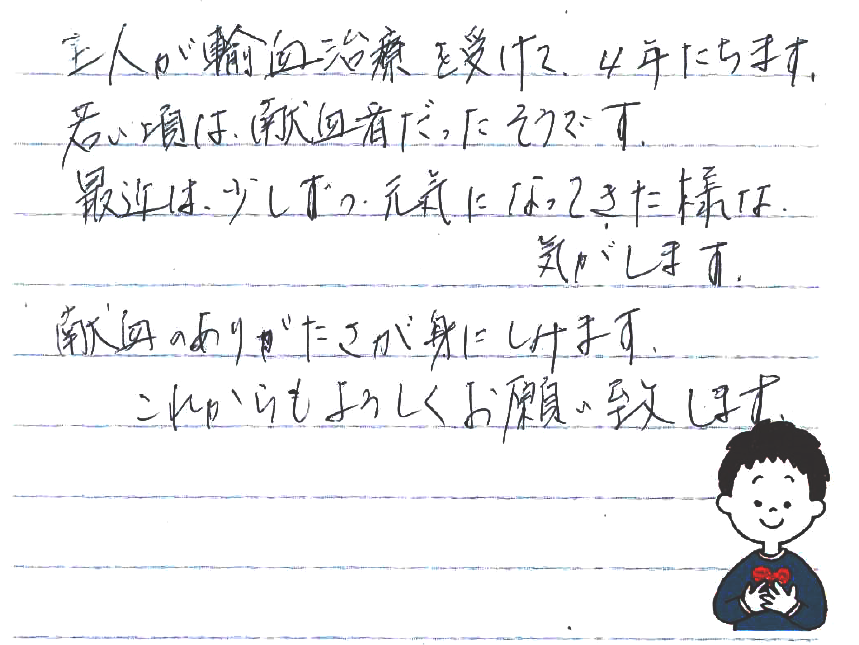 主人が輸血治療を受けて、4年たちます。
若い頃は、献血者だったそうです。
最近は、少しずつ、元気になってきた様な、
気がします。
献血のありがたさが身にしみます。
これからもよろしくお願い致します。